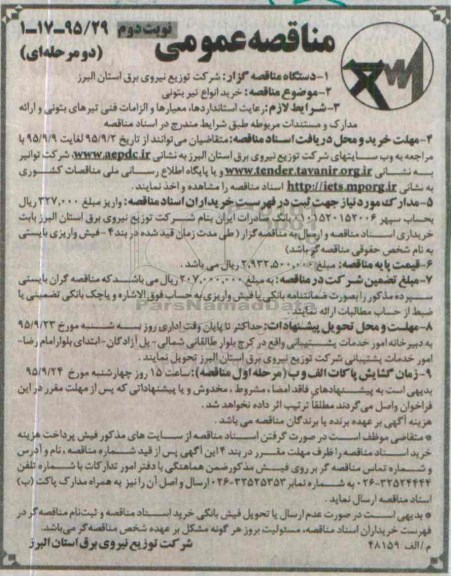 مناقصه عمومی
نوبت دوم
۱-۱۷-۹۵/۲۹
(دو مرحله‌ای)
۱-دستگاه مناقصه گزار: شرکت توزیع نیروی برق استان البرز
۲-موضوع مناقصه: خرید انواع تیر بتونی
۳-شرایط لازم: رعایت استانداردها، معیارها و الزامات فنی تیرهای بتونی و ارائه
مدارک و مستندات مربوطه طبق شرایط مندرج در اسناد مناقصه
۴-مهلت خرید و محل دریافت اسناد مناقصه: متقاضیان می توانند از تاریخ ۹۵/۹/۲ لغایت ۹۵/۹/۹ با
مراجعه به وب سایتهای شرکت توزیع نیروی برق استان البرز به نشانی www.aepdc.ir، شرکت توانیر
به نشانی www.tender.tavanir.org.ir و یا پایگاه اطلاع رسانی ملی مناقصات کشوری
به نشانی http://iets.mporg.ir اسناد مناقصه را مشاهده و اخذ نمایند.
۵-مدارک مورد نیاز جهت ثبت در فهرست خریداران اسناد مناقصه: واریز مبلغ ۳۲۷,۰۰۰ ریال
بحساب سپهر ۰۱۰۱۵۲۰۱۵۲۰۰۶ بانک صادرات ایران بنام شرکت توزیع نیروی برق استان البرز بابت
خریداری اسناد مناقصه و ارسال به مناقصه گزار (طی مدت زمان قید شده در بند۴ - فیش واریزی بایستی
به نام شخص حقوقی مناقصه گر باشد)
۶-قیمت پایه مناقصه: مبلغ ۲,۹۳۲,۵۰۰,۰۰۰ ریال می باشد.
۷-مبلغ تضمین شرکت در مناقصه: به مبلغ ۲۰۷,۰۰۰,۰۰۰ ریال می باشد که مناقصه گران بایستی
سپرده مذکور را بصورت ضمانتنامه بانکی یا فیش واریزی به حساب فوق الاشاره و یا چک بانکی تضمینی یا
ضبط از حساب مطالبات ارائه نمایند.
۸-مهلت و محل تحویل پیشنهادات: حداکثر تا پایان وقت اداری روز سه شنبه مورخ ۹۵/۹/۲۳
به دبیرخانه امور خدمات پشتیبانی واقع در کرج بلوار طالقانی شمالی-پل آزادگان-ابتدای بلوار امام رضا-
امور خدمات پشتیبانی شرکت توزیع نیروی برق استان البرز تحویل نمایند.
۹-زمان گشایش پاکات الف و ب (مرحله اول مناقصه): ساعت ۱۵ روز چهارشنبه مورخ ۹۵/۹/۲۴
بدیهی است به پیشنهادهای فاقد امضا، مشروط، مخدوش و یا پیشنهاداتی که پس از مهلت مقرر در این
فراخوان واصل می گردند مطلقاً ترتیب اثر داده نخواهد شد.
هزینه آگهی بر عهده برنده یا برندگان مناقصه می باشد.
* متقاضی موظف است در صورت گرفتن اسناد مناقصه از سایت های مذکور فیش پرداخت هزینه
خرید اسناد مناقصه را ظرف مهلت مقرر در بند ۴ این آگهی پس از قید شماره مناقصه، نام و آدرس
و شماره تماس مناقصه گر بر روی فیش مذکور ضمن هماهنگی با دفتر امور تدارکات با شماره تلفن
۰۲۶-۳۲۵۲۴۴۴۴ به شماره نمابر ۰۲۶-۳۲۵۲۵۳۵۳ ارسال و اصل آن را نیز به همراه مدارک پاکت (ب)
اسناد مناقصه ارسال نماید.
* بدیهی است در صورت عدم ارسال یا تحویل فیش بانکی خرید اسناد مناقصه و ثبت نام مناقصه گر در
فهرست خریداران اسناد مناقصه، مسئولیت بروز هر گونه مشکل بر عهده شخص مناقصه گر می باشد.
شرکت توزیع نیروی برق استان البرز
م/الف ۴۸۱۵۹